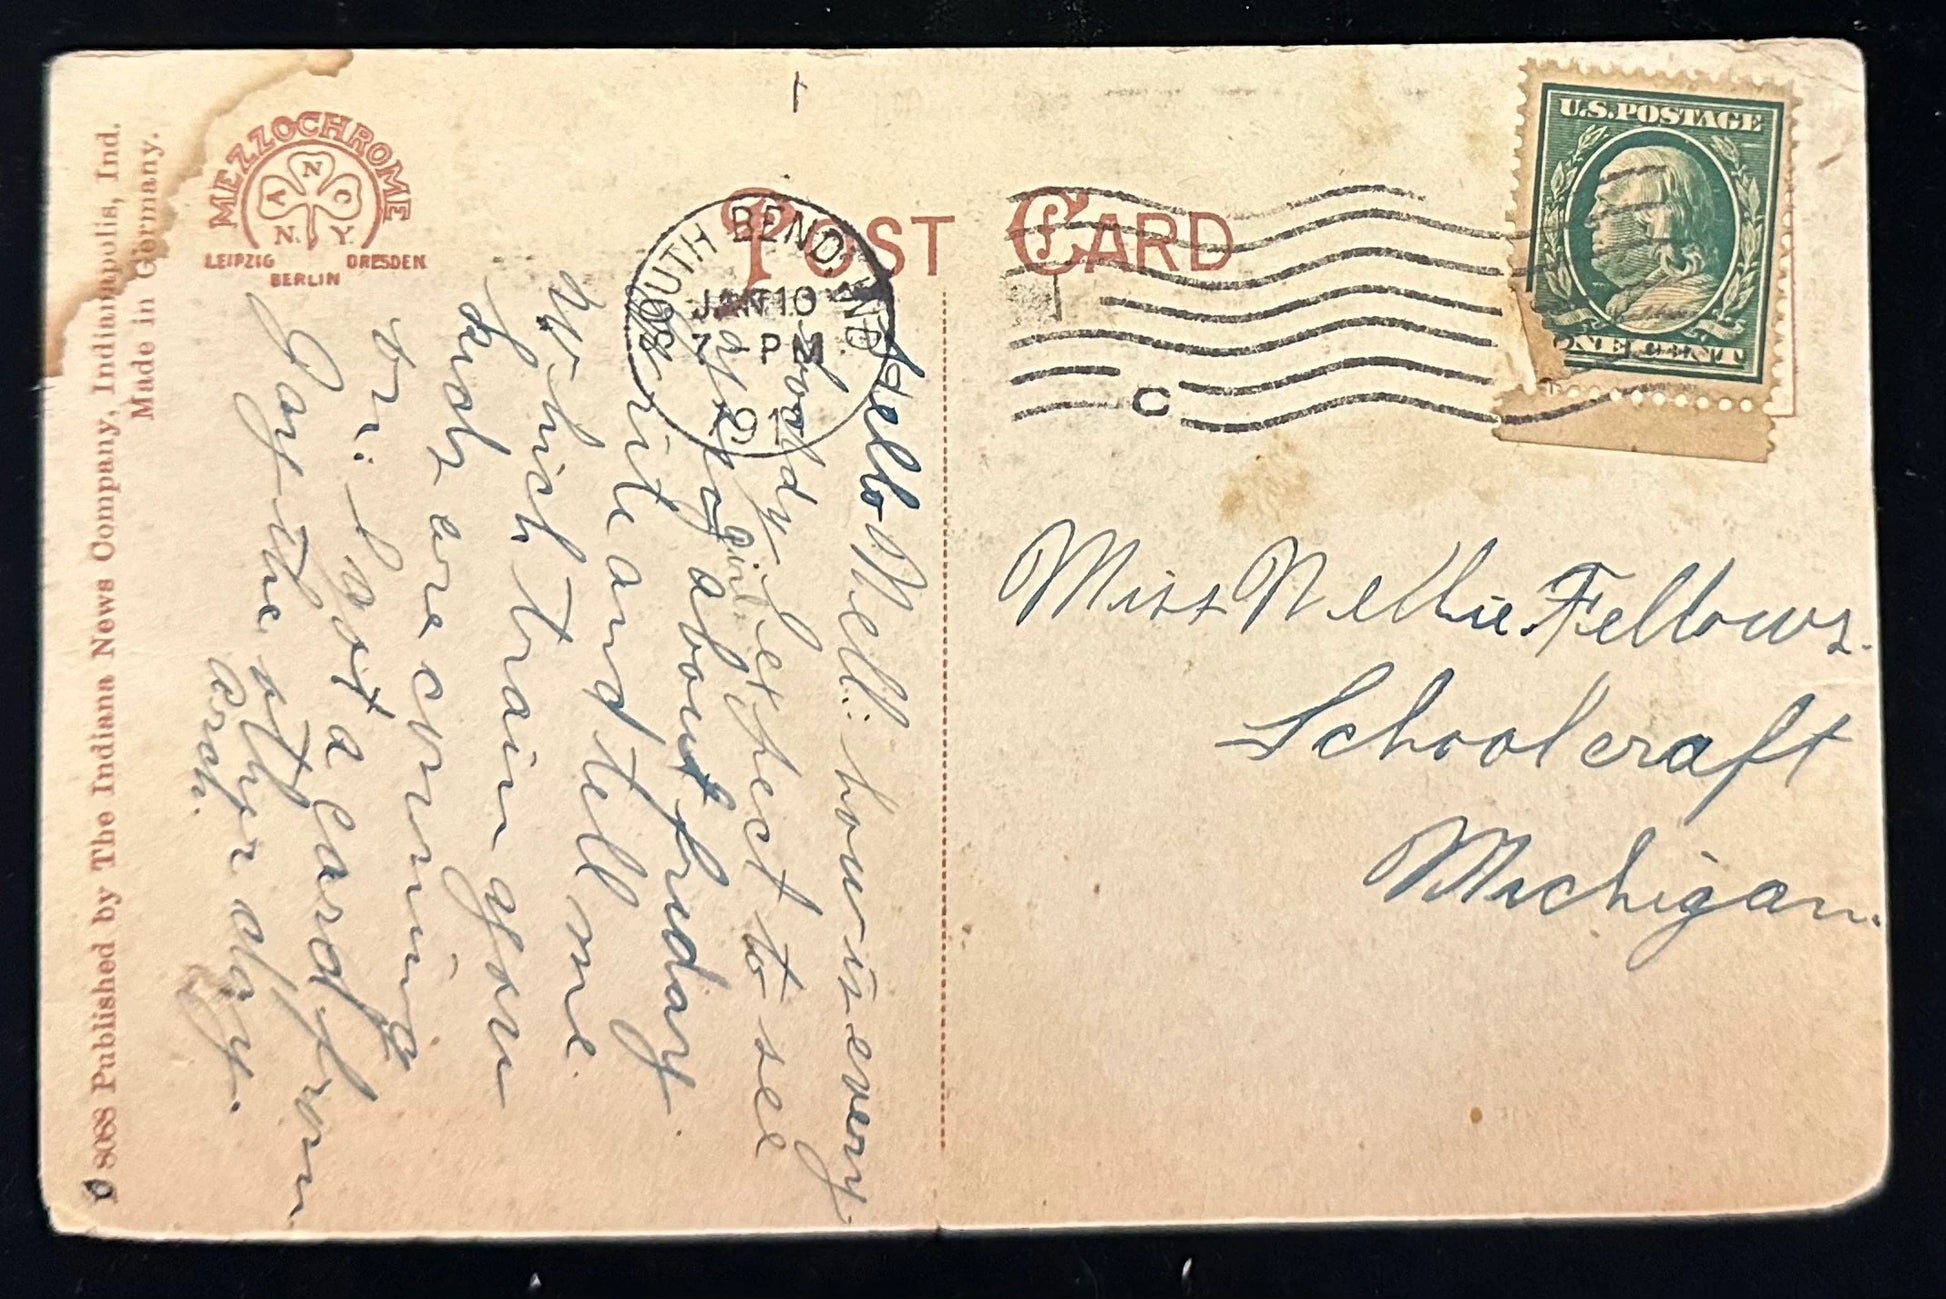 8088 Published by The Indiana News Company, Indianapolis, Ind.
Made in Germany.
MEZZOCHROME
A N C
N. Y.
LEIPZIG DRESDEN
BERLIN
POST CARD
SOUTH BEND, IND.
JAN 10
7 - PM
191
C
U.S. POSTAGE
ONE CENT
Hello Nell: how is every
body I expect to see
you girls
about friday
Write and tell me
which train you
girls are coming
on. I got a card from
Gay the other day.
Miss Nellie Fellows.
Schoolcraft
Michigan.